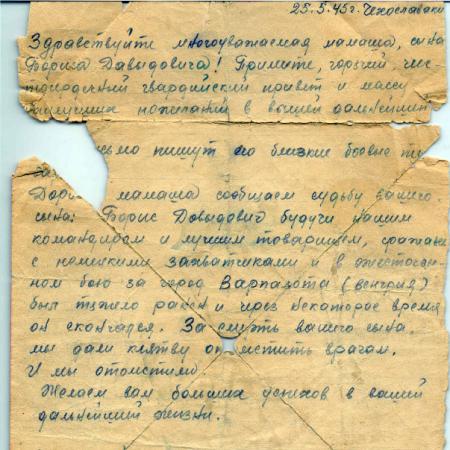 25.5.45г. Чехословаки
Здравствуйте многоуважаемая мамаша, сына
Бориса Давыдовича! Примите, горячий, чис-
тосердечный гвардейский привет и массу
наилучших пожеланий в вашей дальнейшей
письмо пишут его близкие боевые то
Дорогая мамаша сообщаем судьбу вашего
сына: Борис Довыдович будучи нашим
командиром и лучшим товарищем, сражаясь
с немецкими захватчиками и в ожесточен-
ном бою за город Варпалота (венгрия)
был тяжело ранен и через некоторое время
он скончался. За смерть вашего сына
мы дали клятву отомстить врагам.
И мы отомстили
Желаем вам больших успехов в вашей
дальнейшей жизни.